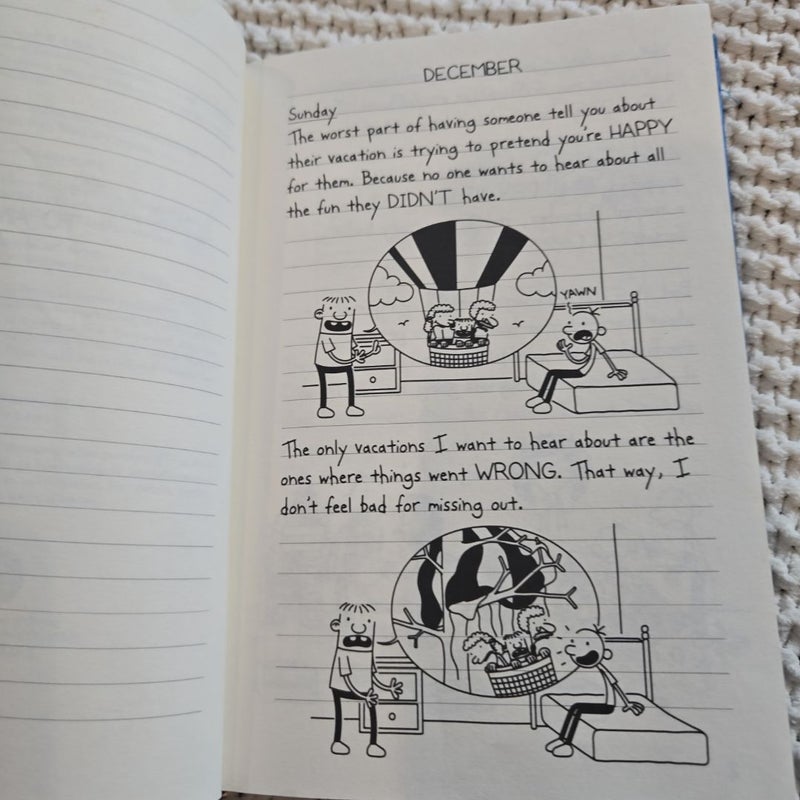 DECEMBER
Sunday
The worst part of having someone tell you about
their vacation is trying to pretend you're HAPPY
for them. Because no one wants to hear about all
the fun they DIDN'T have.
YAWN
The only vacations I want to hear about are the
ones where things went WRONG. That way, I
don't feel bad for missing out.